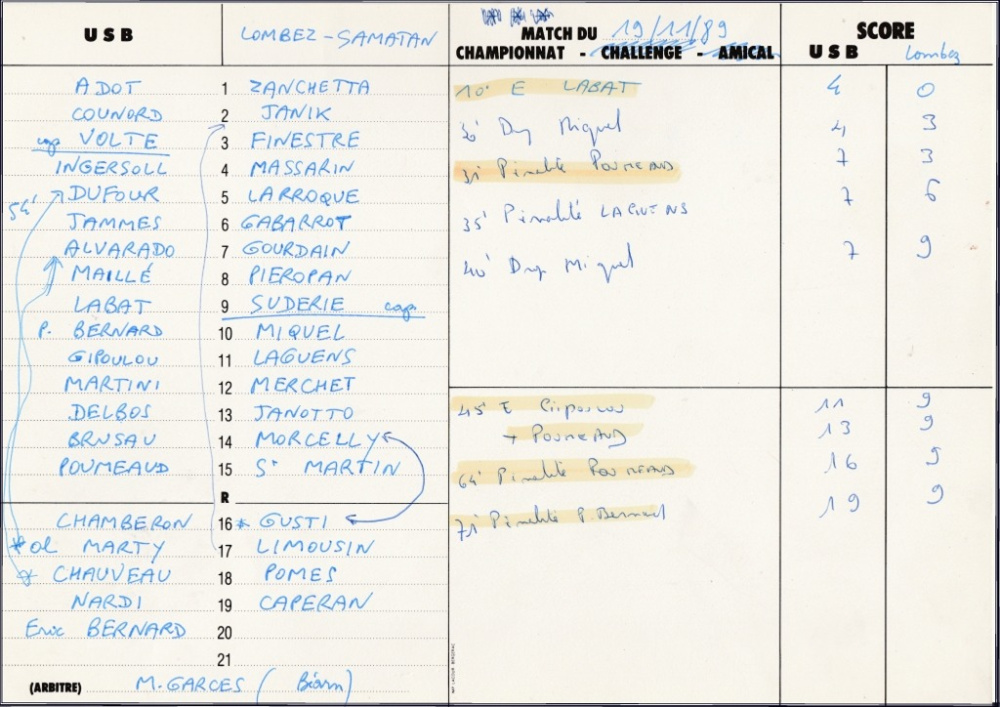 U S B LOMBEZ-SAMATAN
MATCH DU 19/11/89
CHAMPIONNAT - CHALLENGE - AMICAL
SCORE
U S B Lombez
ADOT 1 ZANCHETTA
COUNORD 2 JANIK
cap VOLTE 3 FINESTRE
INGERSOLL 4 MASSARIN
54' DUFOUR 5 LARROQUE
JAMMES 6 GABARROT
ALVARADO 7 GOURDAIN
MAILLÉ 8 PIEROPAN
LABAT 9 SUDERIE cap
P. BERNARD 10 MIQUEL
GIPOULOU 11 LAGUENS
MARTINI 12 MERCHET
DELBOS 13 JANOTTO
BRUSAU 14 MORCELLY
POUMEAUD 15 St MARTIN
R
CHAMBERON 16 * GUSTI
* ol MARTY 17 LIMOUSIN
* CHAUVEAU 18 POMES
NARDI 19 CAPERAN
Eric BERNARD 20
21
(ARBITRE) M. GARCES (Béarn)
10' E LABAT 4 0
30' Drop Miquel 4 3
31' Pénalité POUMEAUD 7 3
35' Pénalité LAGUENS 7 6
40' Drop Miquel 7 9
45' E Gipoulou 11 9
+ POUMEAUD 13 9
64' Pénalité POUMEAUD 16 9
71' Pénalité P. Bernard 19 9